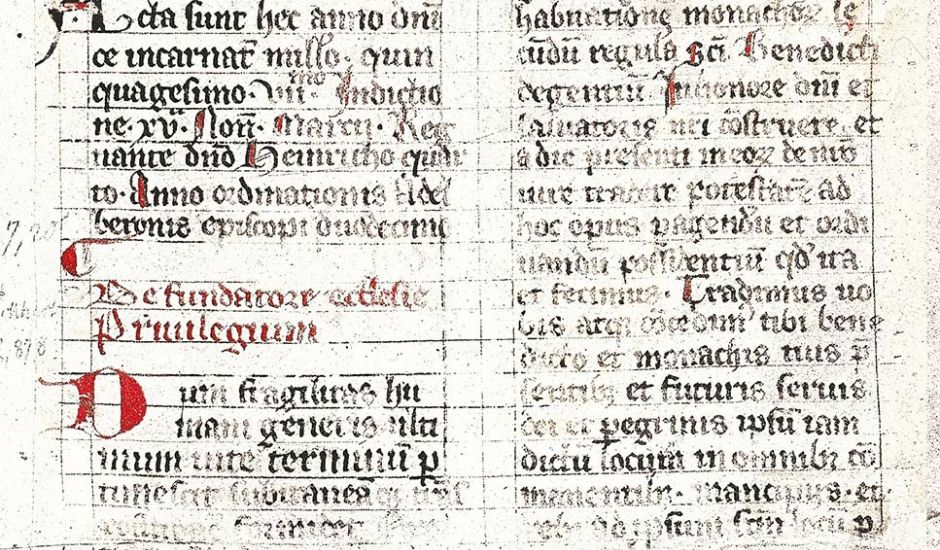 Acta sunt hec anno dnī
ce incarnat̄ millo. quin
quagesimo. viii. Indictio
ne. xv. Non. Marcii. Reg
nante dnō Heinricho quar
to. Anno ordinationis Adel
beronis episcopi duodecimo
De fundatore ecclesie
Priuilegium
Dum fragilitas hu
mani generis ulti
mum uite terminū p
timescit subitanea
habitatione monachoꝝ se
cūdū regulā sc̄i Benedicti
degentiū In honore dnī et
saluatoris nr̄i cōstruere. et
a die presenti
potestatē ad
hoc opus pagendū et ordi
nandū possidentiū qd' ita
et fecimus. Tradimus uo
bis atqꝫ tibi bene
dicto et monachis tuis p̄
sentibꝫ et futuris seruis
dei et ꝑegrinis ipsū iam
dictū locū in omnibꝫ cō
manentibꝫ. mancipiis. et
ad ipsum locū p